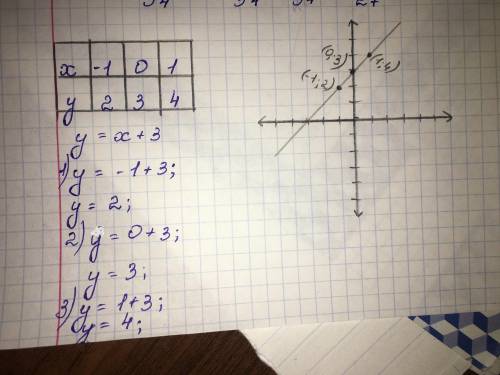 x -1 0 1
y 2 3 4
y = x + 3
1) y = -1+3;
y = 2;
2) y = 0+3;
y = 3;
3) y = 1+3;
y = 4;
(0;3)
(1;4)
(-1;2)